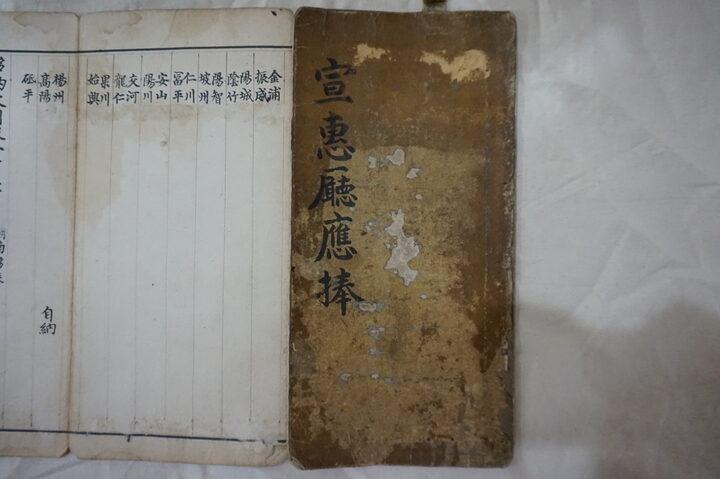 宣惠廳應捧
金浦
振威
陽城
陰竹
陽智
坡州
仁川
冨平
安山
陽川
交河
龍仁
果川
始興
楊州
高陽 自納
砥平